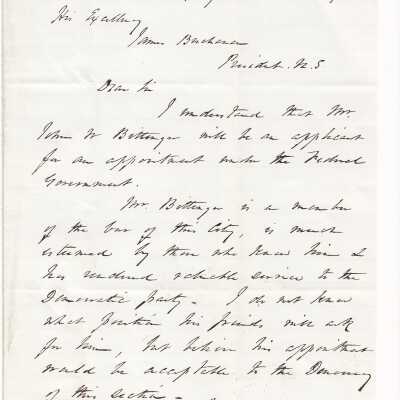 His Excellency
James Buchanan
President. U. S
Dear Sir
I understand that Mr.
John W Bittenger will be an applicant
for an appointment under the Federal
Government.
Mr. Bittenger is a member
of the bar of this City, is much
esteemed by those who know him &
has rendered valuable service to the
Democratic party - I do not know
what position his friends will ask
for him, but believe his appointment
would be acceptable to the Democracy
of this section -